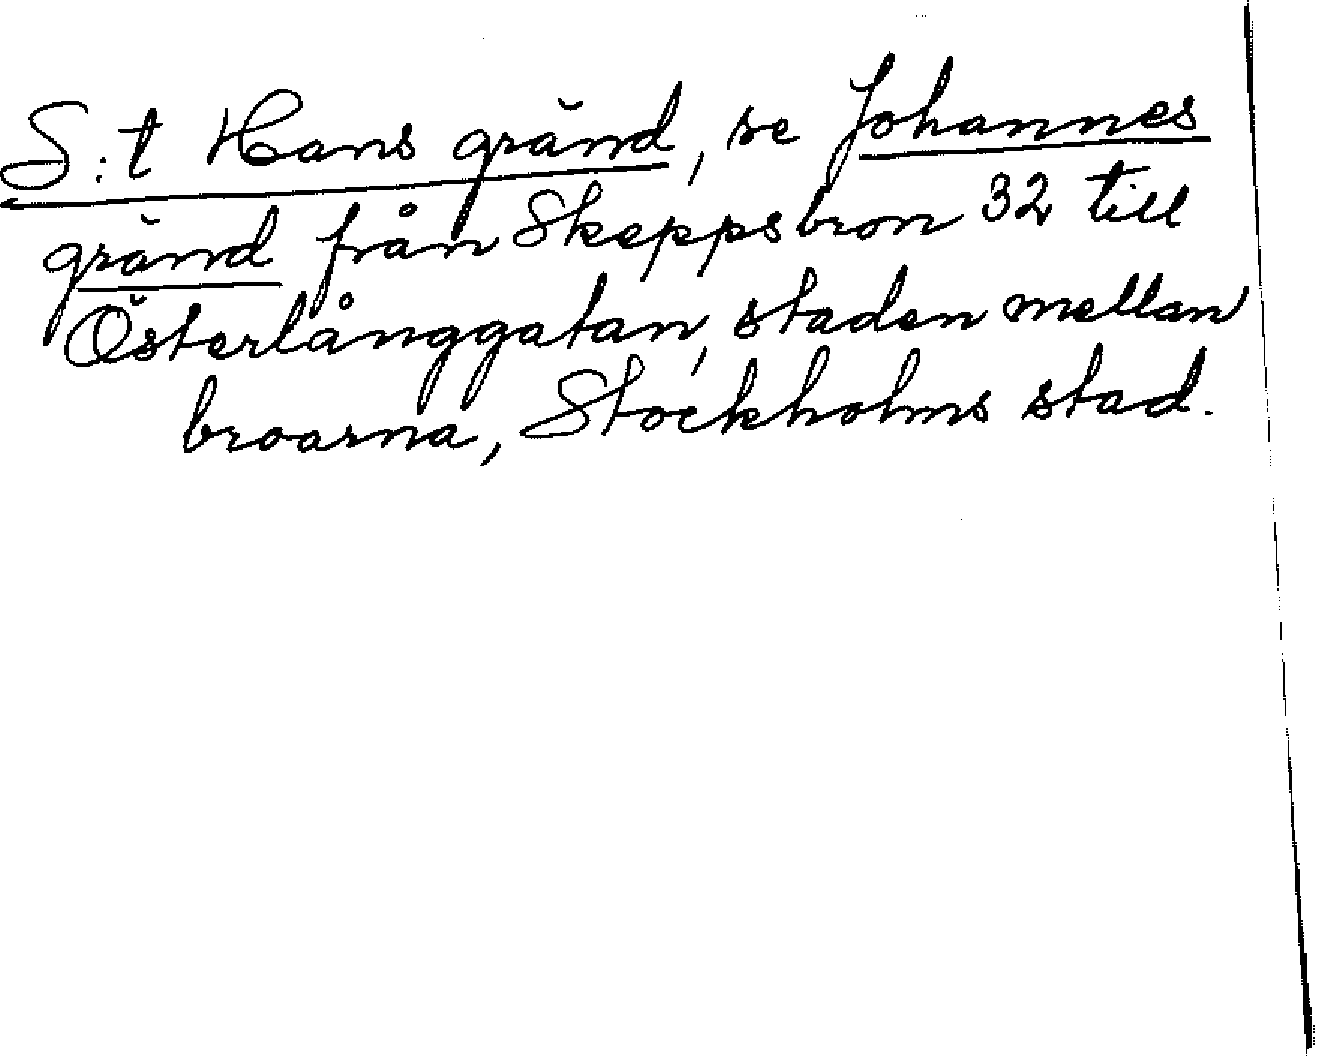 S:t Hans gränd, se Johannes
gränd från Skeppsbron 32 till
Österlånggatan, staden mellan
broarna, Stockholms stad.